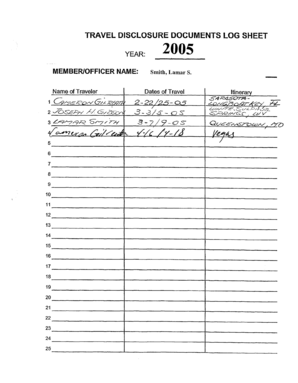 TRAVEL DISCLOSURE DOCUMENTS LOG SHEET
YEAR: 2005
MEMBER/OFFICER NAME: Smith, Lamar S.
Name of Traveler Dates of Travel Itinerary
SARASOTA-
1 CAMERON GILREATH 2-22/25-05 LONGBOAT KEY, FL
WHITE SULPHUR
2 JOSEPH H GIBSON 3-3/5-05 SPRINGS, WV
3 LAMAR SMITH 3-7/9-05 QUEENSTOWN, MD
4 Cameron Gilreath Vegas
5
6
7
8
9
10
11
12
13
14
15
16
17
18
19
20
21
22
23
24
25